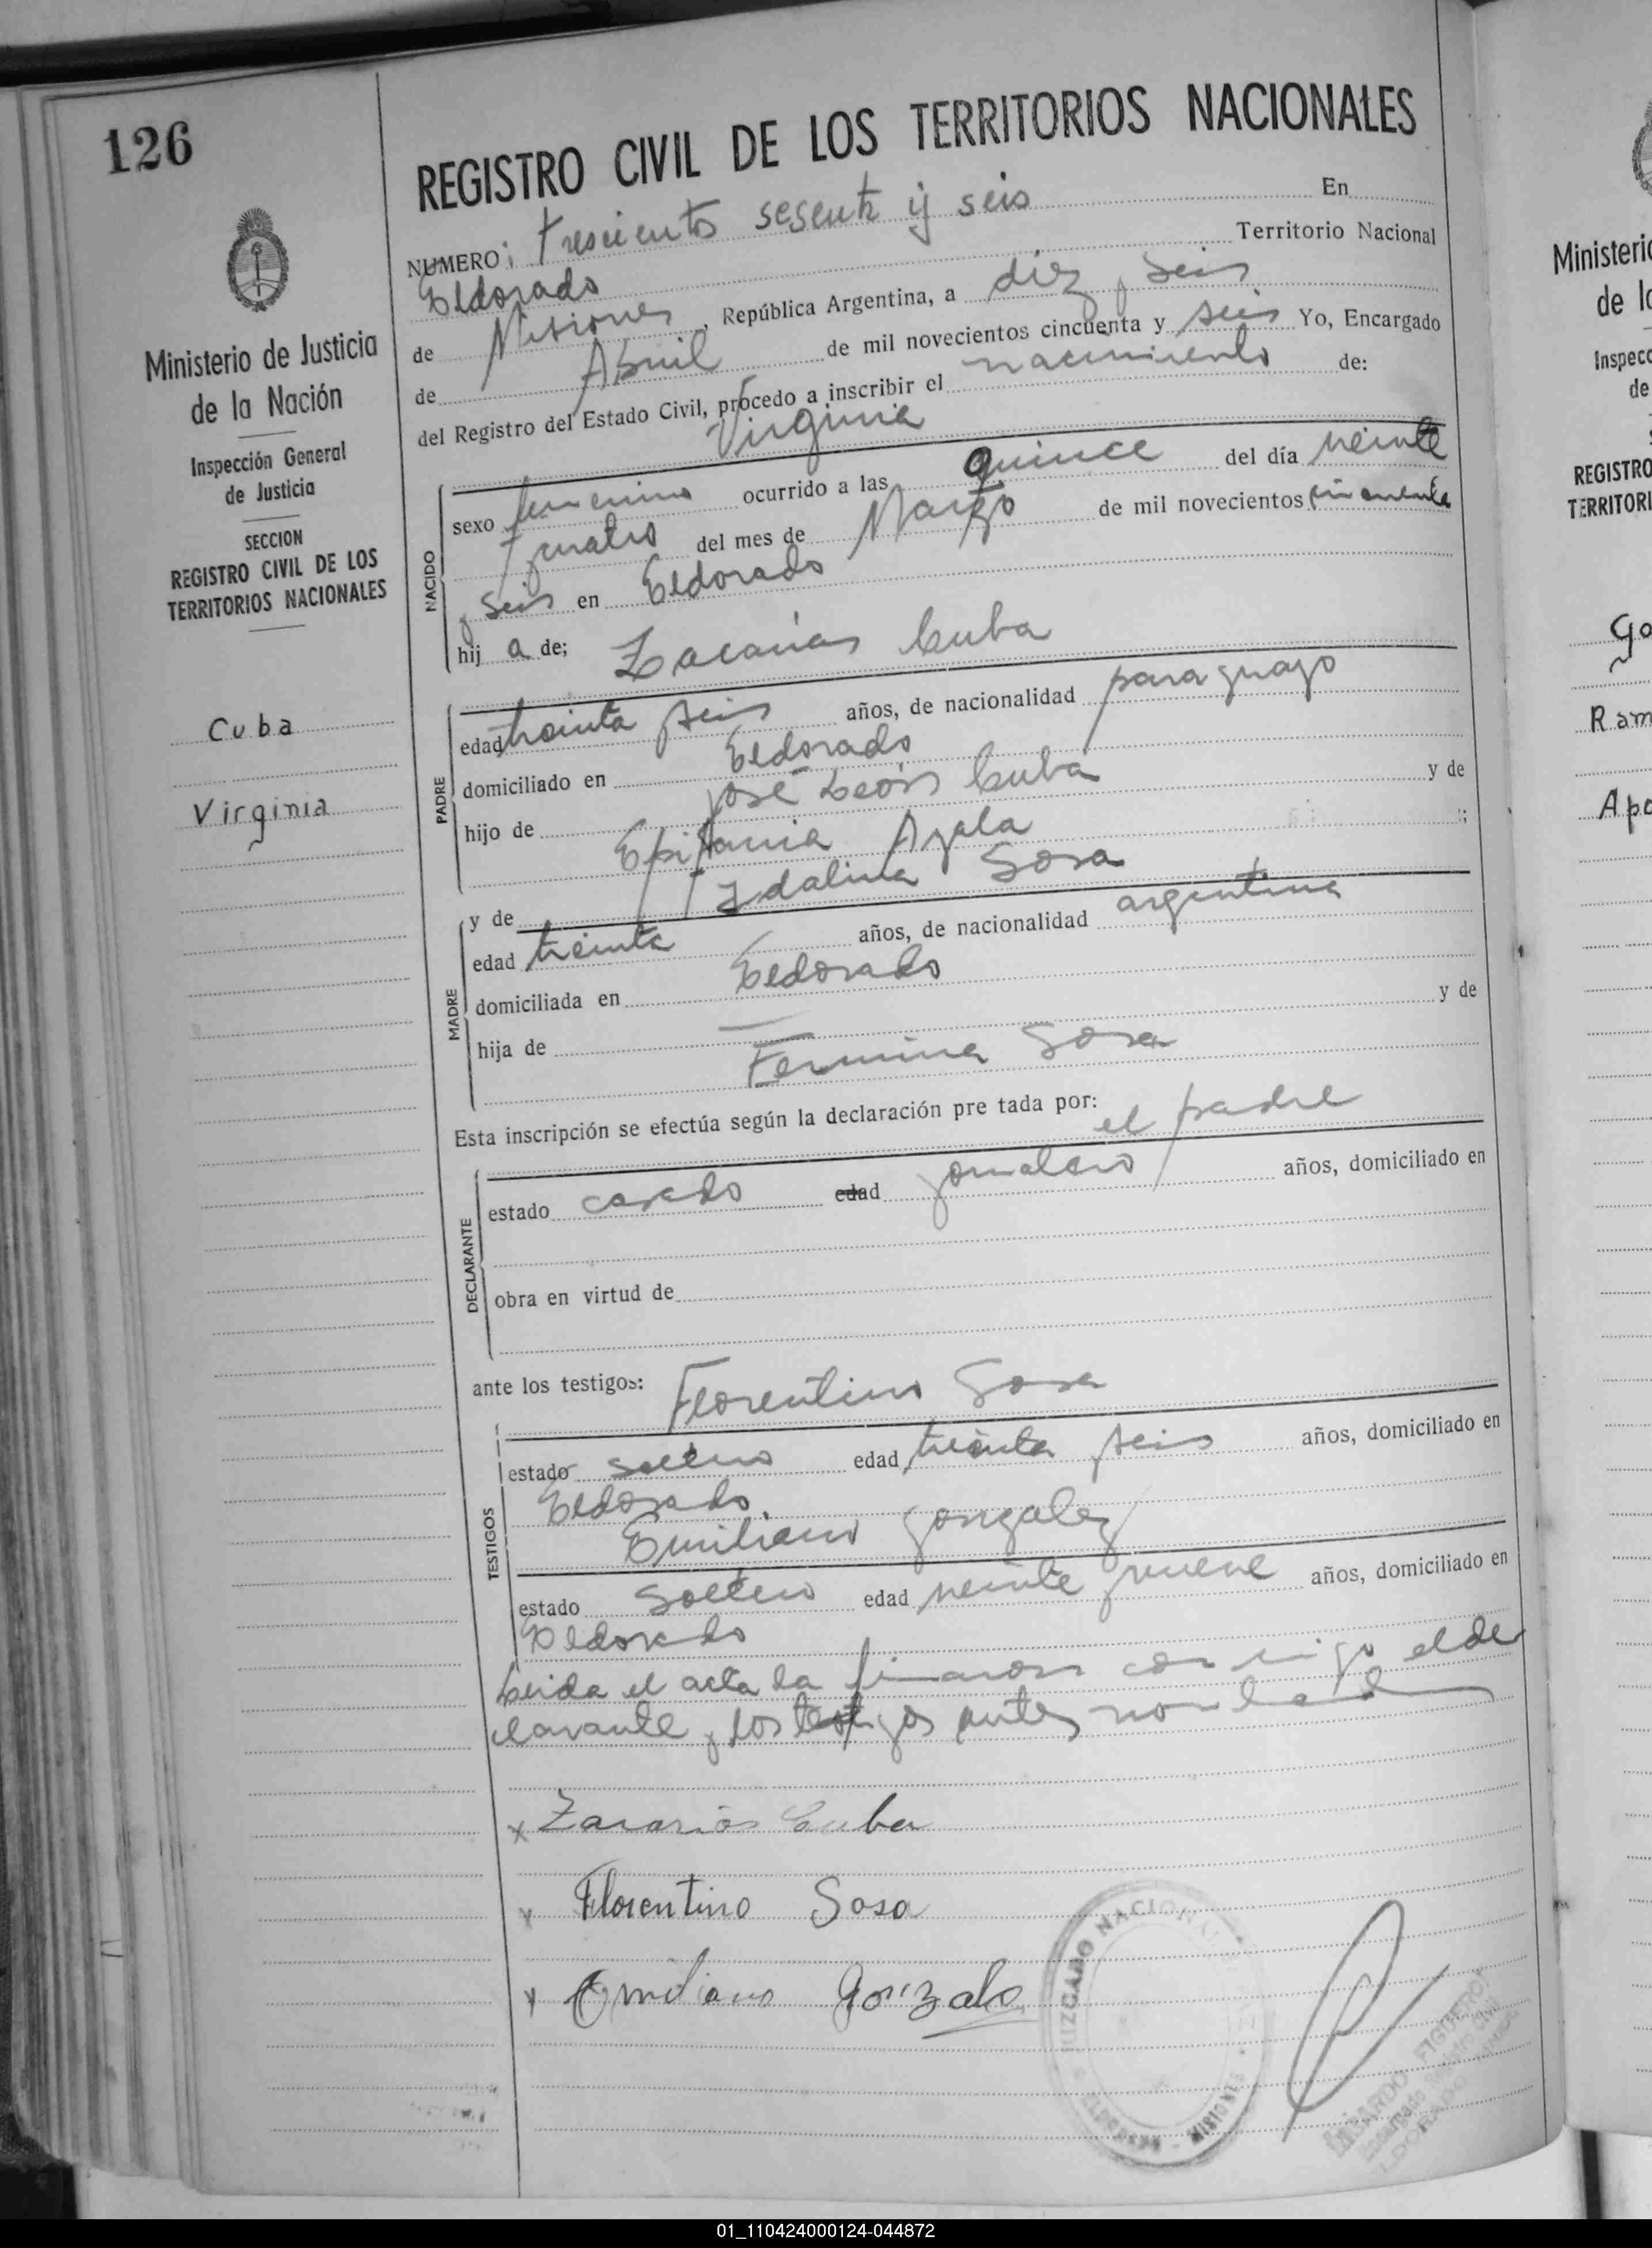 126
REGISTRO CIVIL DE LOS TERRITORIOS NACIONALES
NUMERO: trescientos sesenta y seis En
Eldorado Territorio Nacional
de Misiones, República Argentina, a diez y seis
de Abril de mil novecientos cincuenta y seis Yo, Encargado
del Registro del Estado Civil, procedo a inscribir el nacimiento de:
Virginia
NACIDO
sexo femenino ocurrido a las quince del día veinte
y cuatro del mes de Marzo de mil novecientos cincuenta
y seis en Eldorado
hij a de; Zacarías Cuba
PADRE
edad treinta y seis años, de nacionalidad paraguayo
domiciliado en Eldorado
hijo de José León Cuba y de
Epifania Ayala
y de Idalina Sosa
MADRE
edad treinta años, de nacionalidad argentina
domiciliada en Eldorado
hija de — y de
Fermina Sosa
Esta inscripción se efectúa según la declaración pre tada por:
el padre
DECLARANTE
estado casado edad jornalero años, domiciliado en
obra en virtud de
ante los testigos: Florentino Sosa
TESTIGOS
estado soltero edad treinta y seis años, domiciliado en
Eldorado
Emiliano Gonzalez
estado soltero edad veinte y nueve años, domiciliado en
Eldorado
Leida el acta la firmaron conmigo el de
clarante y los testigos antes nombrad
x Zacarias Cuba
x Florentino Sosa
x Emiliano Gonzales
JUZGADO NACIONAL
ELDORADO - MISIONES
FIGUEROA
Encargado Registro Civil
ELDORADO
Ministerio de Justicia
de la Nación
Inspección General
de Justicia
SECCION
REGISTRO CIVIL DE LOS
TERRITORIOS NACIONALES
Cuba
Virginia
Ministeri
de l
Inspecc
de
REGISTRO
TERRITORI
Go
Ram
Apo
01_110424000124-044872